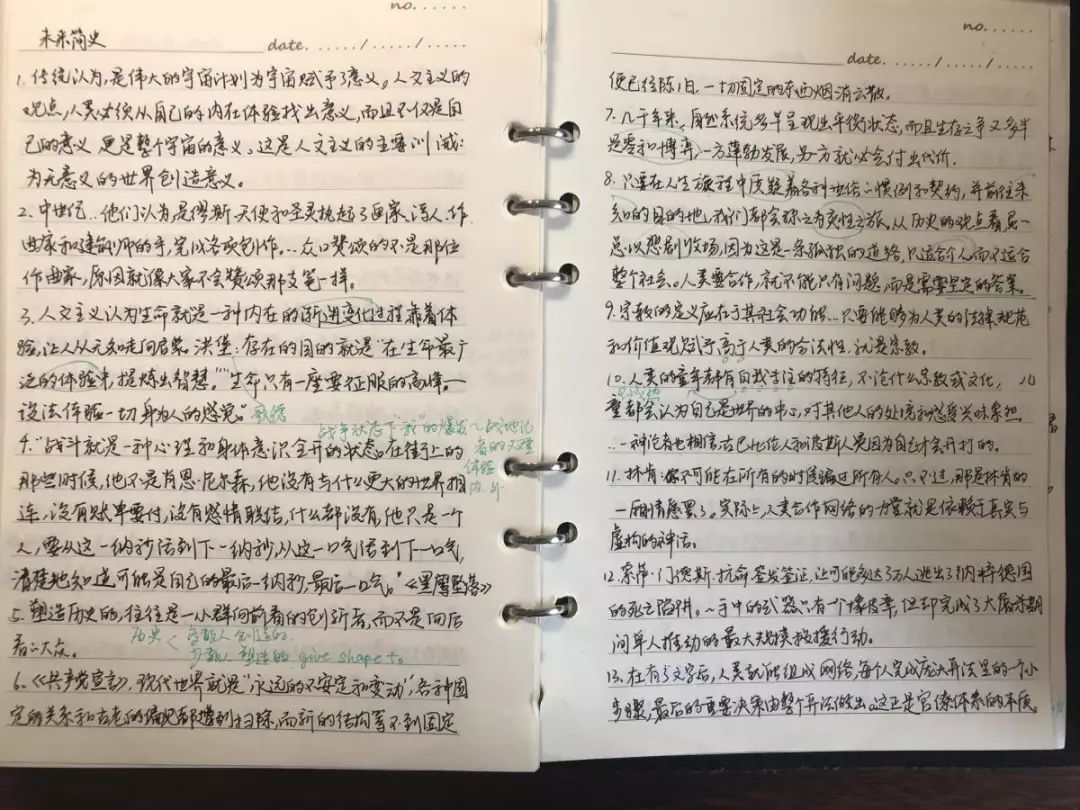 no......
未来简史
date....../....../......
1. 传统认为，是伟大的宇宙计划为宇宙赋予了意义。人文主义的
观点，人类必须从自己的内在体验找出意义，而且不仅是自
己的意义 更是整个宇宙的意义。这是人文主义的主要训诫：
为无意义的世界创造意义。
2. 中世纪..他们认为是缪斯、天使和圣灵挑起了画家、诗人、作
曲家和建筑师的手，完成各项创作。...众口赞颂的不是那位
作曲家，原因就像大家不会赞颂那支笔一样。
3. 人文主义认为生命就是一种内在的渐进变化过程靠着体
验，让人从无知走向启蒙。洪堡：存在的目的就是“在生命最广
泛的体验中，提炼出智慧。”“生命只有一座要征服的高峰——
设法体验一切身为人的感觉。”
战争状态下“我”的爆发～战地记
者的
体验
4. “战斗就是一种心理和身体意识全开的状态。在街上的
那些时候，他不是肖恩·尼尔森，他没有与什么更大的世界相
连，没有账单要付，没有感情联结，什么都没有，他只是一个
人，要从这一纳秒活到下一纳秒，从这一口气活到下一口气，
清楚地知道可能是自己的最后一纳秒，最后一口气。”《黑鹰坠落》
5. 塑造历史的，往往是一小群向前看的创新者，而不是向后
看的大众。
历史 < 多数人创造的
少数人塑造的 give shape to
6. 《共产党宣言》，现代世界就是“永远的不安定和变动”，各种固
定的关系和古老的偏见都遭到扫除，而新的结构等不到固定
no......
date....../....../......
便已经陈旧。一切固定的东西烟消云散。
7. 几千年来，自然系统多半呈现出平衡状态，而且生存之争又多半
是零和博弈，一方蓬勃发展，另一方就必会付出代价。
8. 只要在人生旅程中质疑着各种世俗的惯例和契约，并前往未
知的目的地，我们都会称之为灵性之旅。从历史的观点看，
总以悲剧收场，因为这是一条孤独的道路，只适合个人而不适合
整个社会。人类要合作，就不能只有问题，而是需要坚定的答案。
9. 宗教的定义应在于其社会功能...只要能够为人类的法律规范
和价值观赋予高于人类的合法性，就是宗教。
10. 人类的童年都有自我专注的特征，不论什么宗教或文化，儿
童都会认为自己是世界的中心，对其他人的处境和感受兴味索然。
一神论者也相信古巴比伦人和波斯人是因为自己才会开打的。
11. 林肯：你不可能在所有的时候骗过所有人。只不过，那是林肯的
一厢情愿罢了。实际上，人类合作网络的力量就是依赖于真实与
虚构的神话。
12. 索萨·门德斯。抗命签发签证，让可能多达3万人逃出了纳粹德国
的死亡陷阱。～手中的武器只有一个橡皮章，但却完成了大屠杀期
间单人推动的最大规模救援行动。
13. 在有了文字后，人类就能组成网络，每个人完成庞大算法里的一个小
步骤，最后的重要决策由整个算法做出。这正是官僚体系的本质。